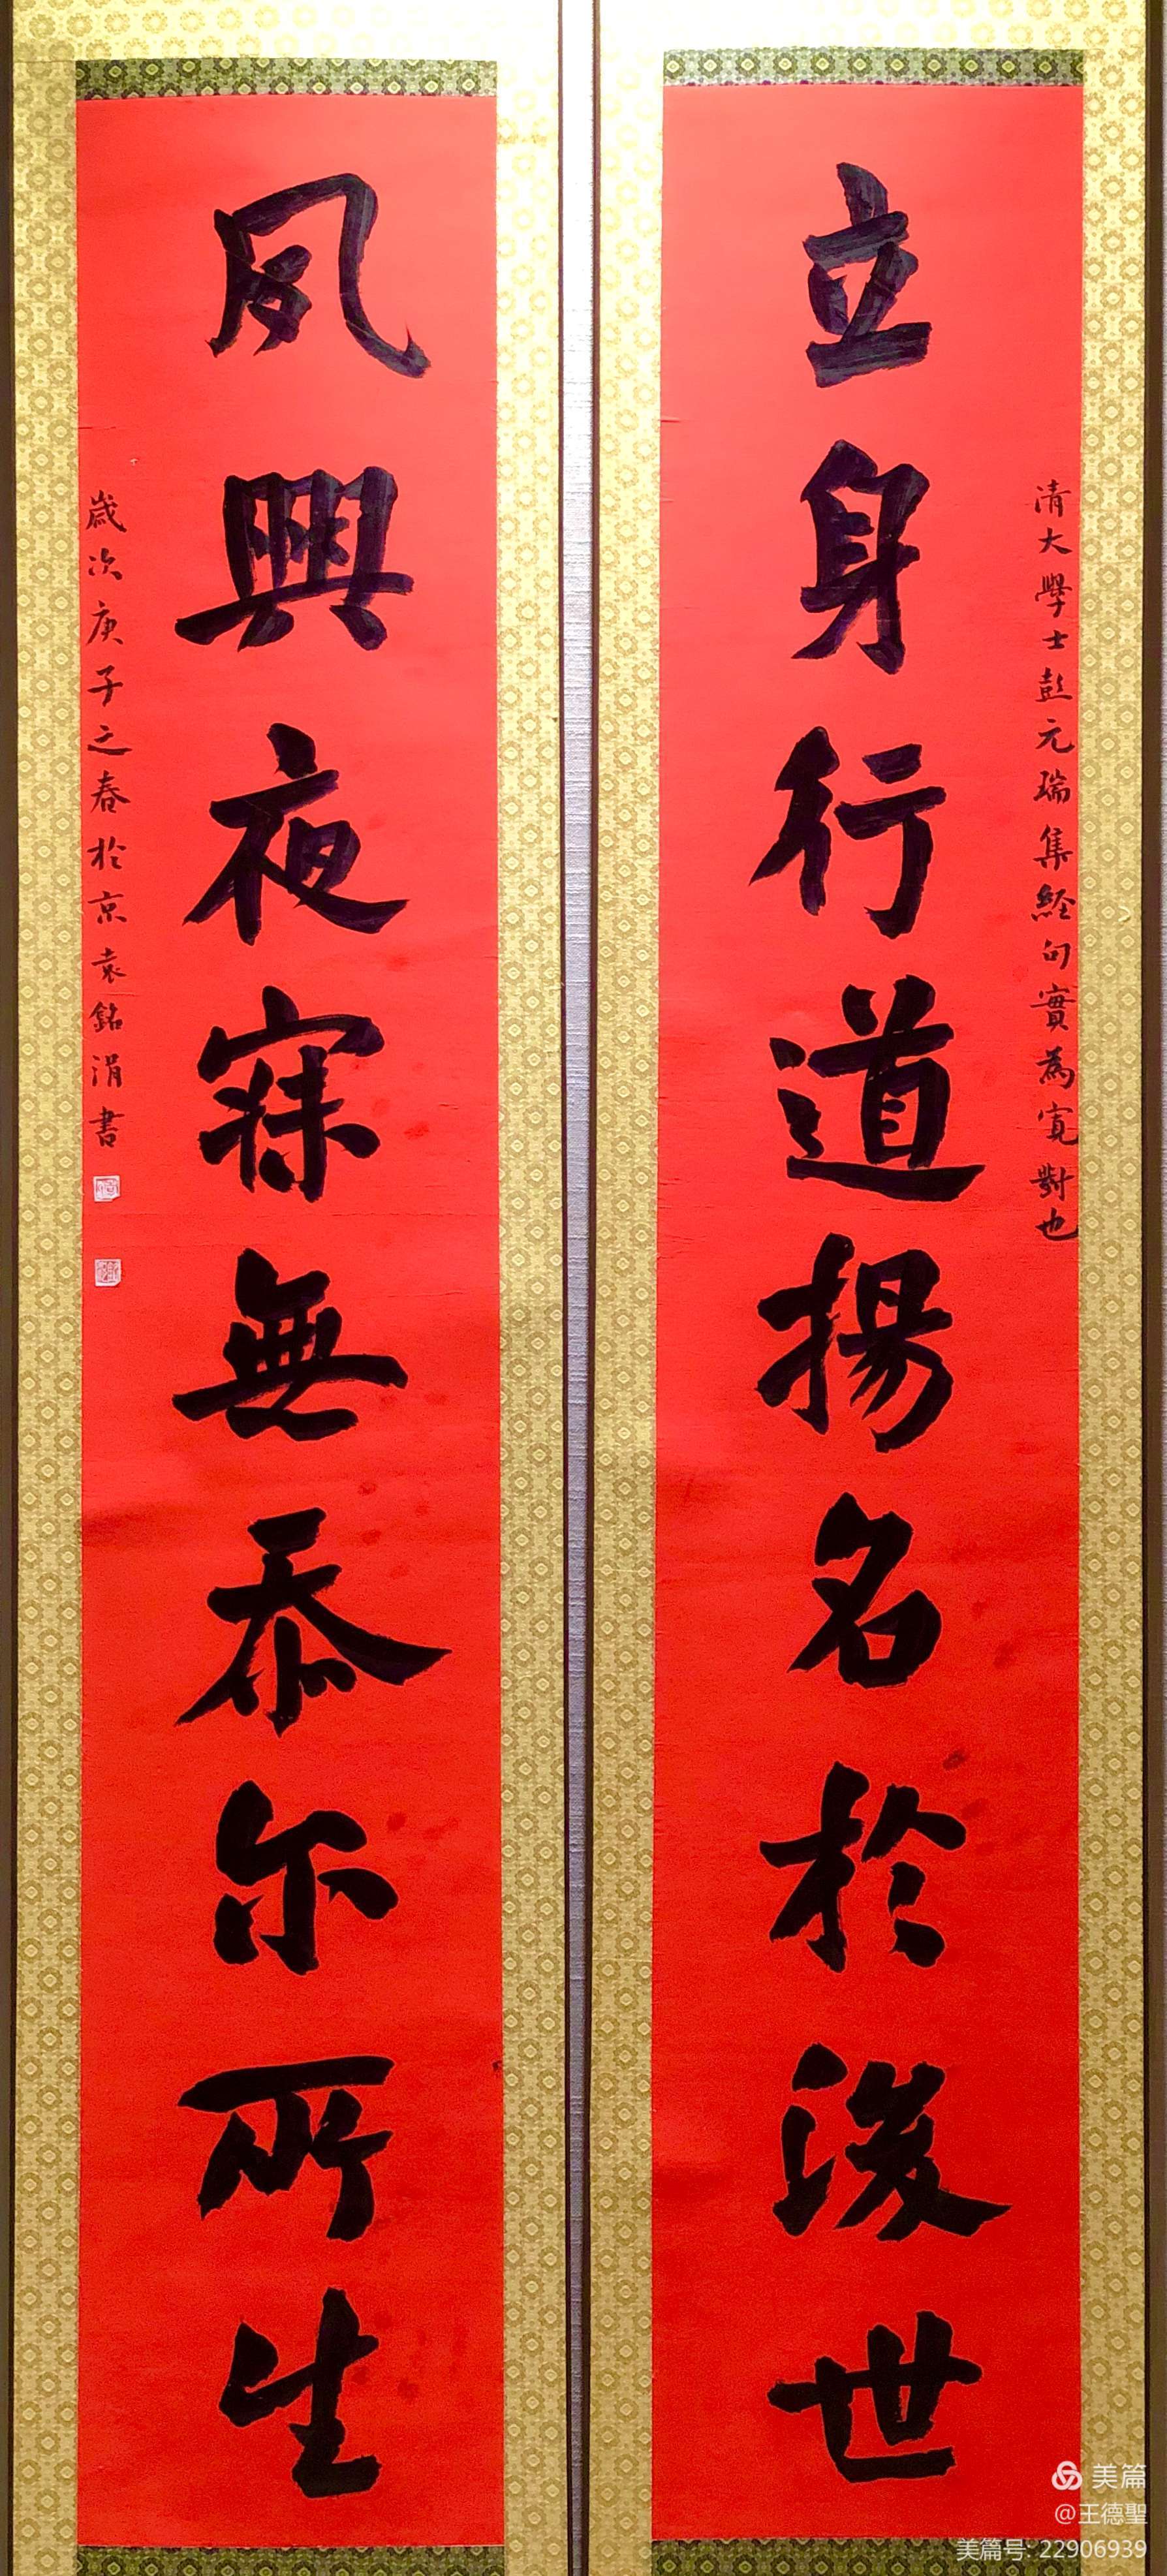 立身行道揚名於後世
清大學士彭元瑞集經句實為寬對也
夙興夜寐無忝尔所生
歲次庚子之春於京袁銘涓書
美篇
@王德聖
美篇号: 22906939